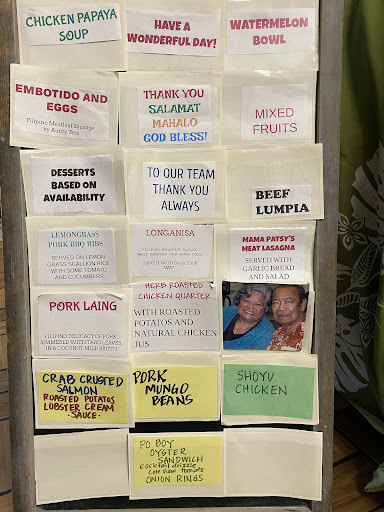 CHICKEN PAPAYA
SOUP
HAVE A
WONDERFUL DAY!
WATERMELON
BOWL
EMBOTIDO AND
EGGS
Filipino Meatloaf Sausage
by Aunty Tess
THANK YOU
SALAMAT
MAHALO
GOD BLESS!
MIXED
FRUITS
DESSERTS
BASED ON
AVAILABILITY
TO OUR TEAM
THANK YOU
ALWAYS
BEEF
LUMPIA
LEMONGRASS
PORK BBQ RIBS
SERVED ON LEMON
GRASS SCALLION RICE
WITH SOME TOMATO
AND CUCUMBERS
LONGANISA
MAMA PATSY'S
MEAT LASAGNA
SERVED WITH
GARLIC BREAD
AND SALAD
PORK LAING
FILIPINO DELICACY OF PORK,
SIMMERED WITH TARO LEAVES,
IN A COCONUT MILK BROTH
HERB ROASTED
CHICKEN QUARTER
WITH ROASTED
POTATOS AND
NATURAL CHICKEN
JUS
CRAB CRUSTED
SALMON
ROASTED POTATOS
LOBSTER CREAM
·SAUCE·
PORK
MUNGO
BEANS
SHOYU
CHICKEN
PO BOY
OYSTER
SANDWICH
cocktail drizzle
cole slaw tomato
ONION RINGS